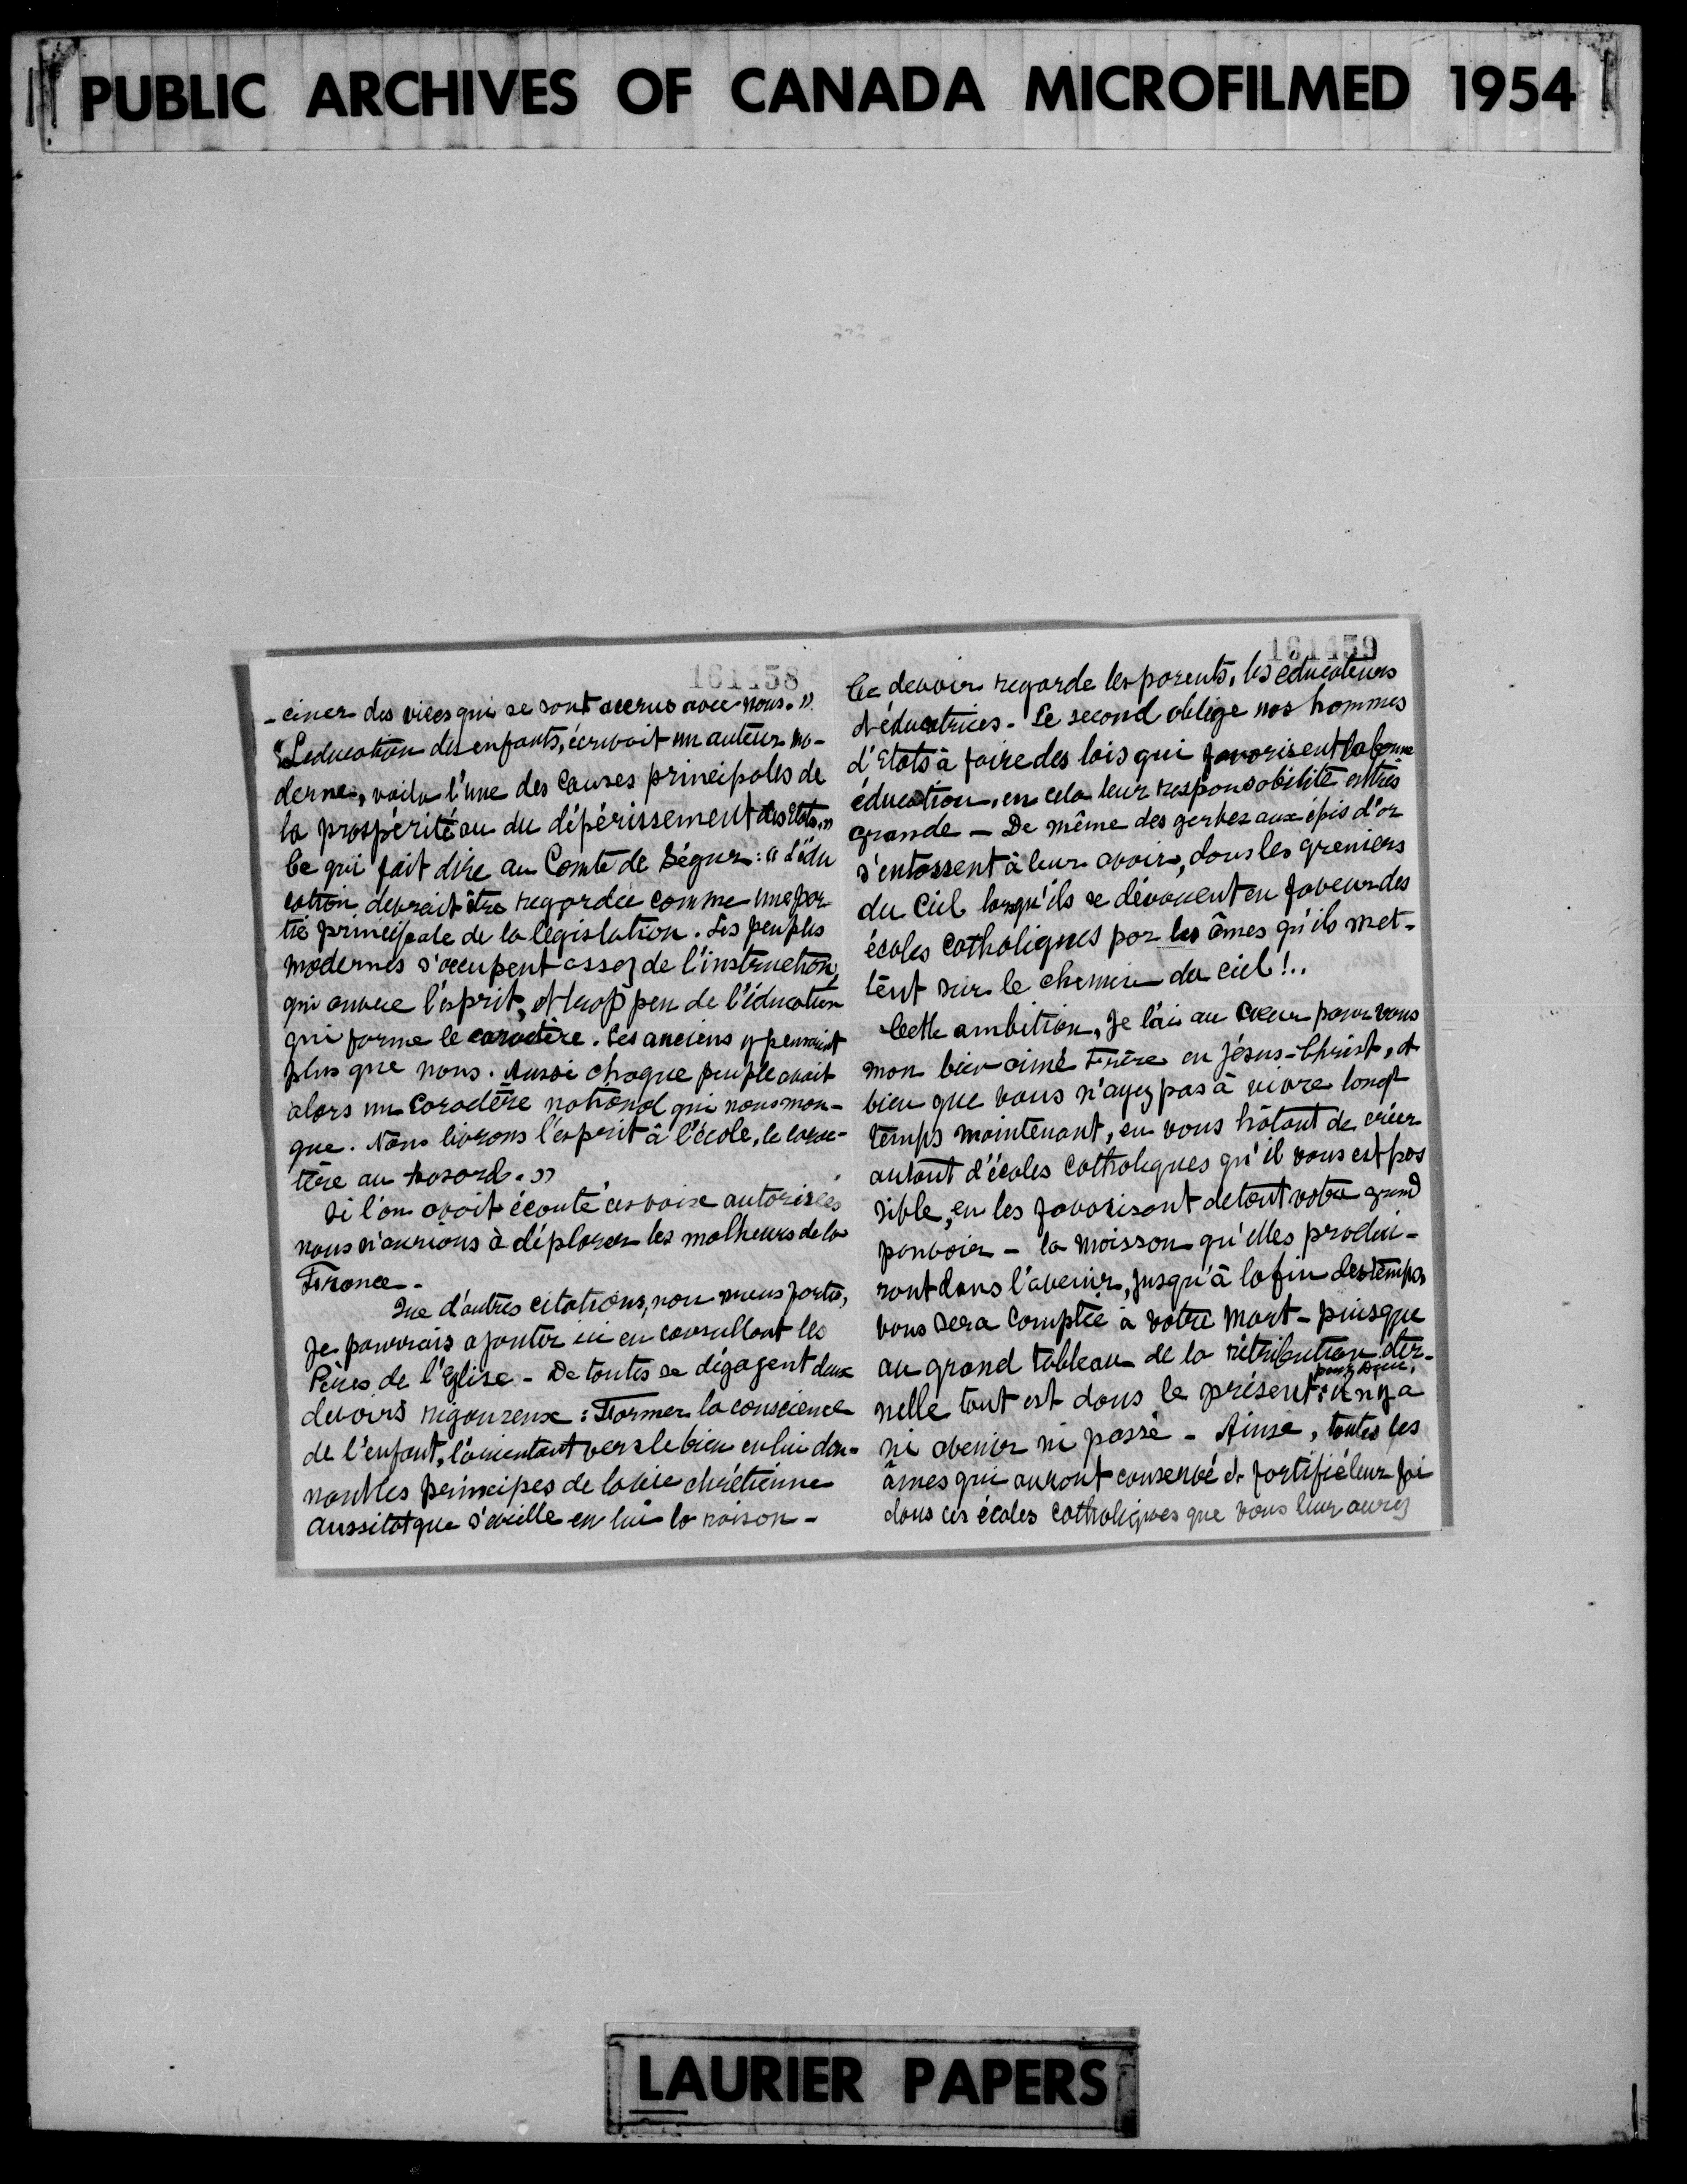 PUBLIC ARCHIVES OF CANADA MICROFILMED 1954
161458
-ciner des vices qui se sont accrus avec nous."
"L'education des enfants, écrivait un auteur mo-
derne, voila l'une des causes principales de
la prospérité ou du dépérissement des Etats."
Ce qui fait dire au Comte de Ségur: "L'édu
cation devrait être regardée comme une par
tie principale de la législation. Les peuples
modernes s'occupent assez de l'instruction,
qui ouvre l'esprit, et trop peu de l'éducation
qui forme le caractère. Les anciens y pensaient
plus que nous. Aussi chaque peuple avait
alors un caractère national qui nous man-
que. Nous livrons l'esprit à l'école, le carac-
tère au hasard."
Si l'on avait écouté ces voix autorisées
nous n'aurions à déplorer les malheurs de la
France.
Que d'autres citations, non moins fortes,
je pourrais ajouter ici en consultant les
Pères de l'Eglise - De toutes se dégagent deux
devoirs rigoureux: Former la conscience
de l'enfant, l'orientant vers le bien en lui don-
nant les principes de la vie chrétienne
aussitot que s'éveille en lui la raison -
161459
Ce devoir regarde les parents, les educateurs
et éducatrices - Le second oblige nos hommes
d'Etats à faire des lois qui favorisent la bonne
éducation, en cela leur responsabilité est très
grande - De même des gerbes aux épis d'or
s'entassent à leur avoir, dans les greniers
du Ciel lorsqu'ils se dévouent en faveur des
écoles catholiques par les âmes qu'ils met-
tent sur le chemin du ciel!..
Cette ambition, Je l'ai au cœur pour vous
mon bien aimé Frère en Jésus-Christ, et
bien que vous n'ayez pas à vivre longt
temps maintenant, en vous hâtant de créer
autant d'écoles catholiques qu'il vous est pos
sible, en les favorisant de tout votre grand
pouvoir - la moisson qu'elles produi-
ront dans l'avenir, jusqu'à la fin des temps
vous sera comptée à votre mort - puisque
au grand tableau de la rétribution éter-
pour Dieu,
nelle tout est dans le présent: il n'y a
ni avenir ni passé - Ainse, toutes les
âmes qui auront conservé et fortifié leur foi
dans ces écoles catholiques que vous leur aurez
LAURIER PAPERS